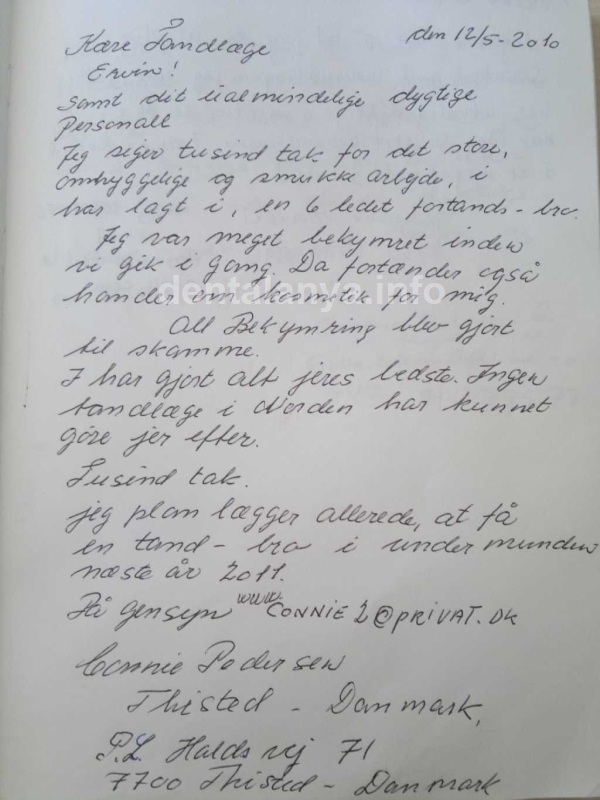 den 12/5-2010
Kære Tandlæge
Ervin!
samt dit ualmindelige dygtige
Personall
Jeg siger tusind tak for det store,
omhyggelige og smukke arbejde, i
har lagt i, en 6 ledet fortands-bro.
Jeg var meget bekymret inden
vi gik i gang. Da fortænder også
hander om kosmetik for mig.
All Bekymring blev gjort
til skamme.
I har gjort alt jeres bedste. Ingen
tandlæge i Norden har kunnet
gøre jer efter.
Tusind tak.
jeg plan lægger allerede, at få
en tand-bro i under munden
næste år 2011.
På gensyn www CONNIE2@PRIVAT.DK
Connie Pedersen
Thisted - Danmark,
P.L. Halds vej 71
7700 Thisted - Danmark
dentalanya.info